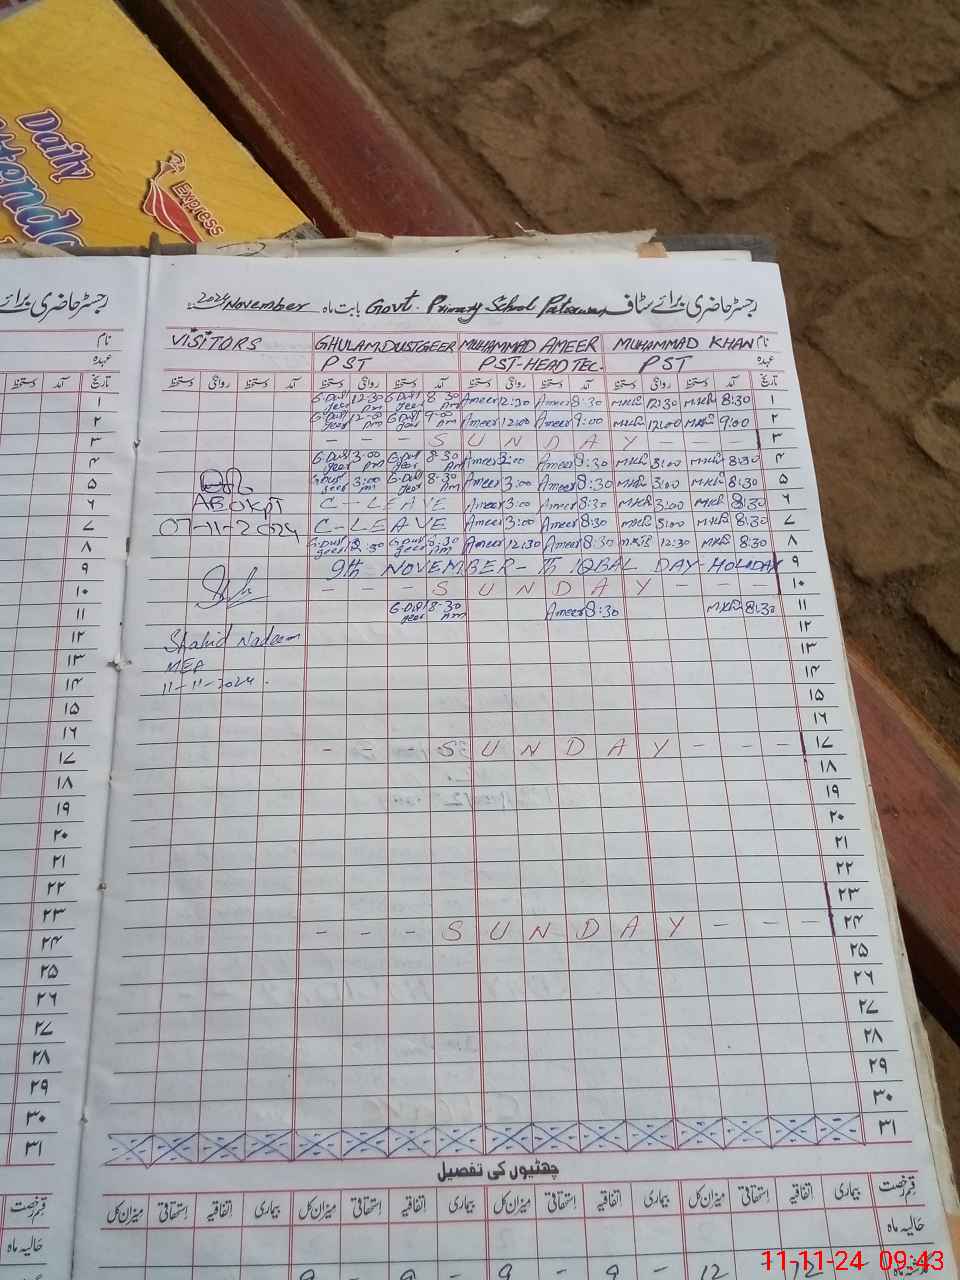 Daily
Express
رجسٹر حاضری برائے سٹاف Govt. Primary School بابت ماہ November 2024
رجسٹر حاضری برائے
نام MUHAMMAD KHAN MUHAMMAD AMEER GHULAM DUSTGEER VISITORS
عہدہ PST PST-HEAD TEC. PST
تاریخ آمد دستخط روانگی دستخط آمد دستخط روانگی دستخط آمد دستخط روانگی دستخط آمد دستخط روانگی دستخط
۱ 8:30 MKhan 12:30 MKhan 8:30 Ameer 12:30 Ameer 8:30 Am G.Dust geer 12:30 Pm G.Dust geer
۲ 9:00 MKhan 12:00 MKhan 9:00 Ameer 12:00 Ameer 9:00 Am G.Dust geer 12:00 Pm G.Dust geer
۳ - - - S U N D A Y - - -
۴ 8:30 MKhan 3:00 MKhan 8:30 Ameer 3:00 Ameer 8:30 Am G.Dust geer 3:00 Pm G.Dust geer
۵ 8:30 MKhan 3:00 MKhan 8:30 Ameer 3:00 Ameer 8:30 Am G.Dust geer 3:00 Pm G.Dust geer
۶ 8:30 MKhan 3:00 MKhan 8:30 Ameer 3:00 Ameer C-LEAVE
۷ 8:30 MKhan 3:00 MKhan 8:30 Ameer 3:00 Ameer C-LEAVE
07-11-2024
۸ 8:30 MKhan 12:30 MKhan 8:30 Ameer 12:30 Ameer 8:30 Am G.Dust geer 12:30 G.Dust geer
۹ 9th NOVEMBER - IQBAL DAY - HOLIDAY
۱۰ - - - S U N D A Y - - -
۱۱ 8:30 MKhan 8:30 Ameer 8:30 Am G.Dust geer
۱۲
Shahid Nadeem
۱۳
MEA
۱۴
11-11-2024.
۱۵
۱۶
۱۷ - - - S U N D A Y - - -
۱۸
۱۹
۲۰
۲۱
۲۲
۲۳
۲۴ - - - S U N D A Y - - -
۲۵
۲۶
۲۷
۲۸
۲۹
۳۰
۳۱
چھٹیوں کی تفصیل
قسم رخصت بیماری اتفاقیہ استحقاقی میزان کل بیماری اتفاقیہ استحقاقی میزان کل بیماری اتفاقیہ استحقاقی میزان کل
حالیہ ماہ
12 - 12 9 - 9 - 9 - 9
11-11-24 09:43